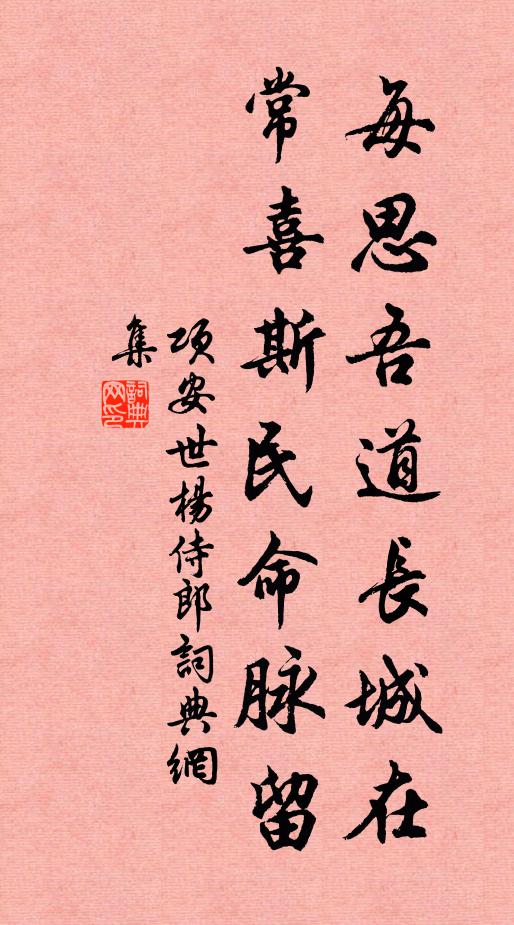 每思吾道長城在
常喜斯民命脉留
項安世楊侍郎詞典網
集
詞典
网印